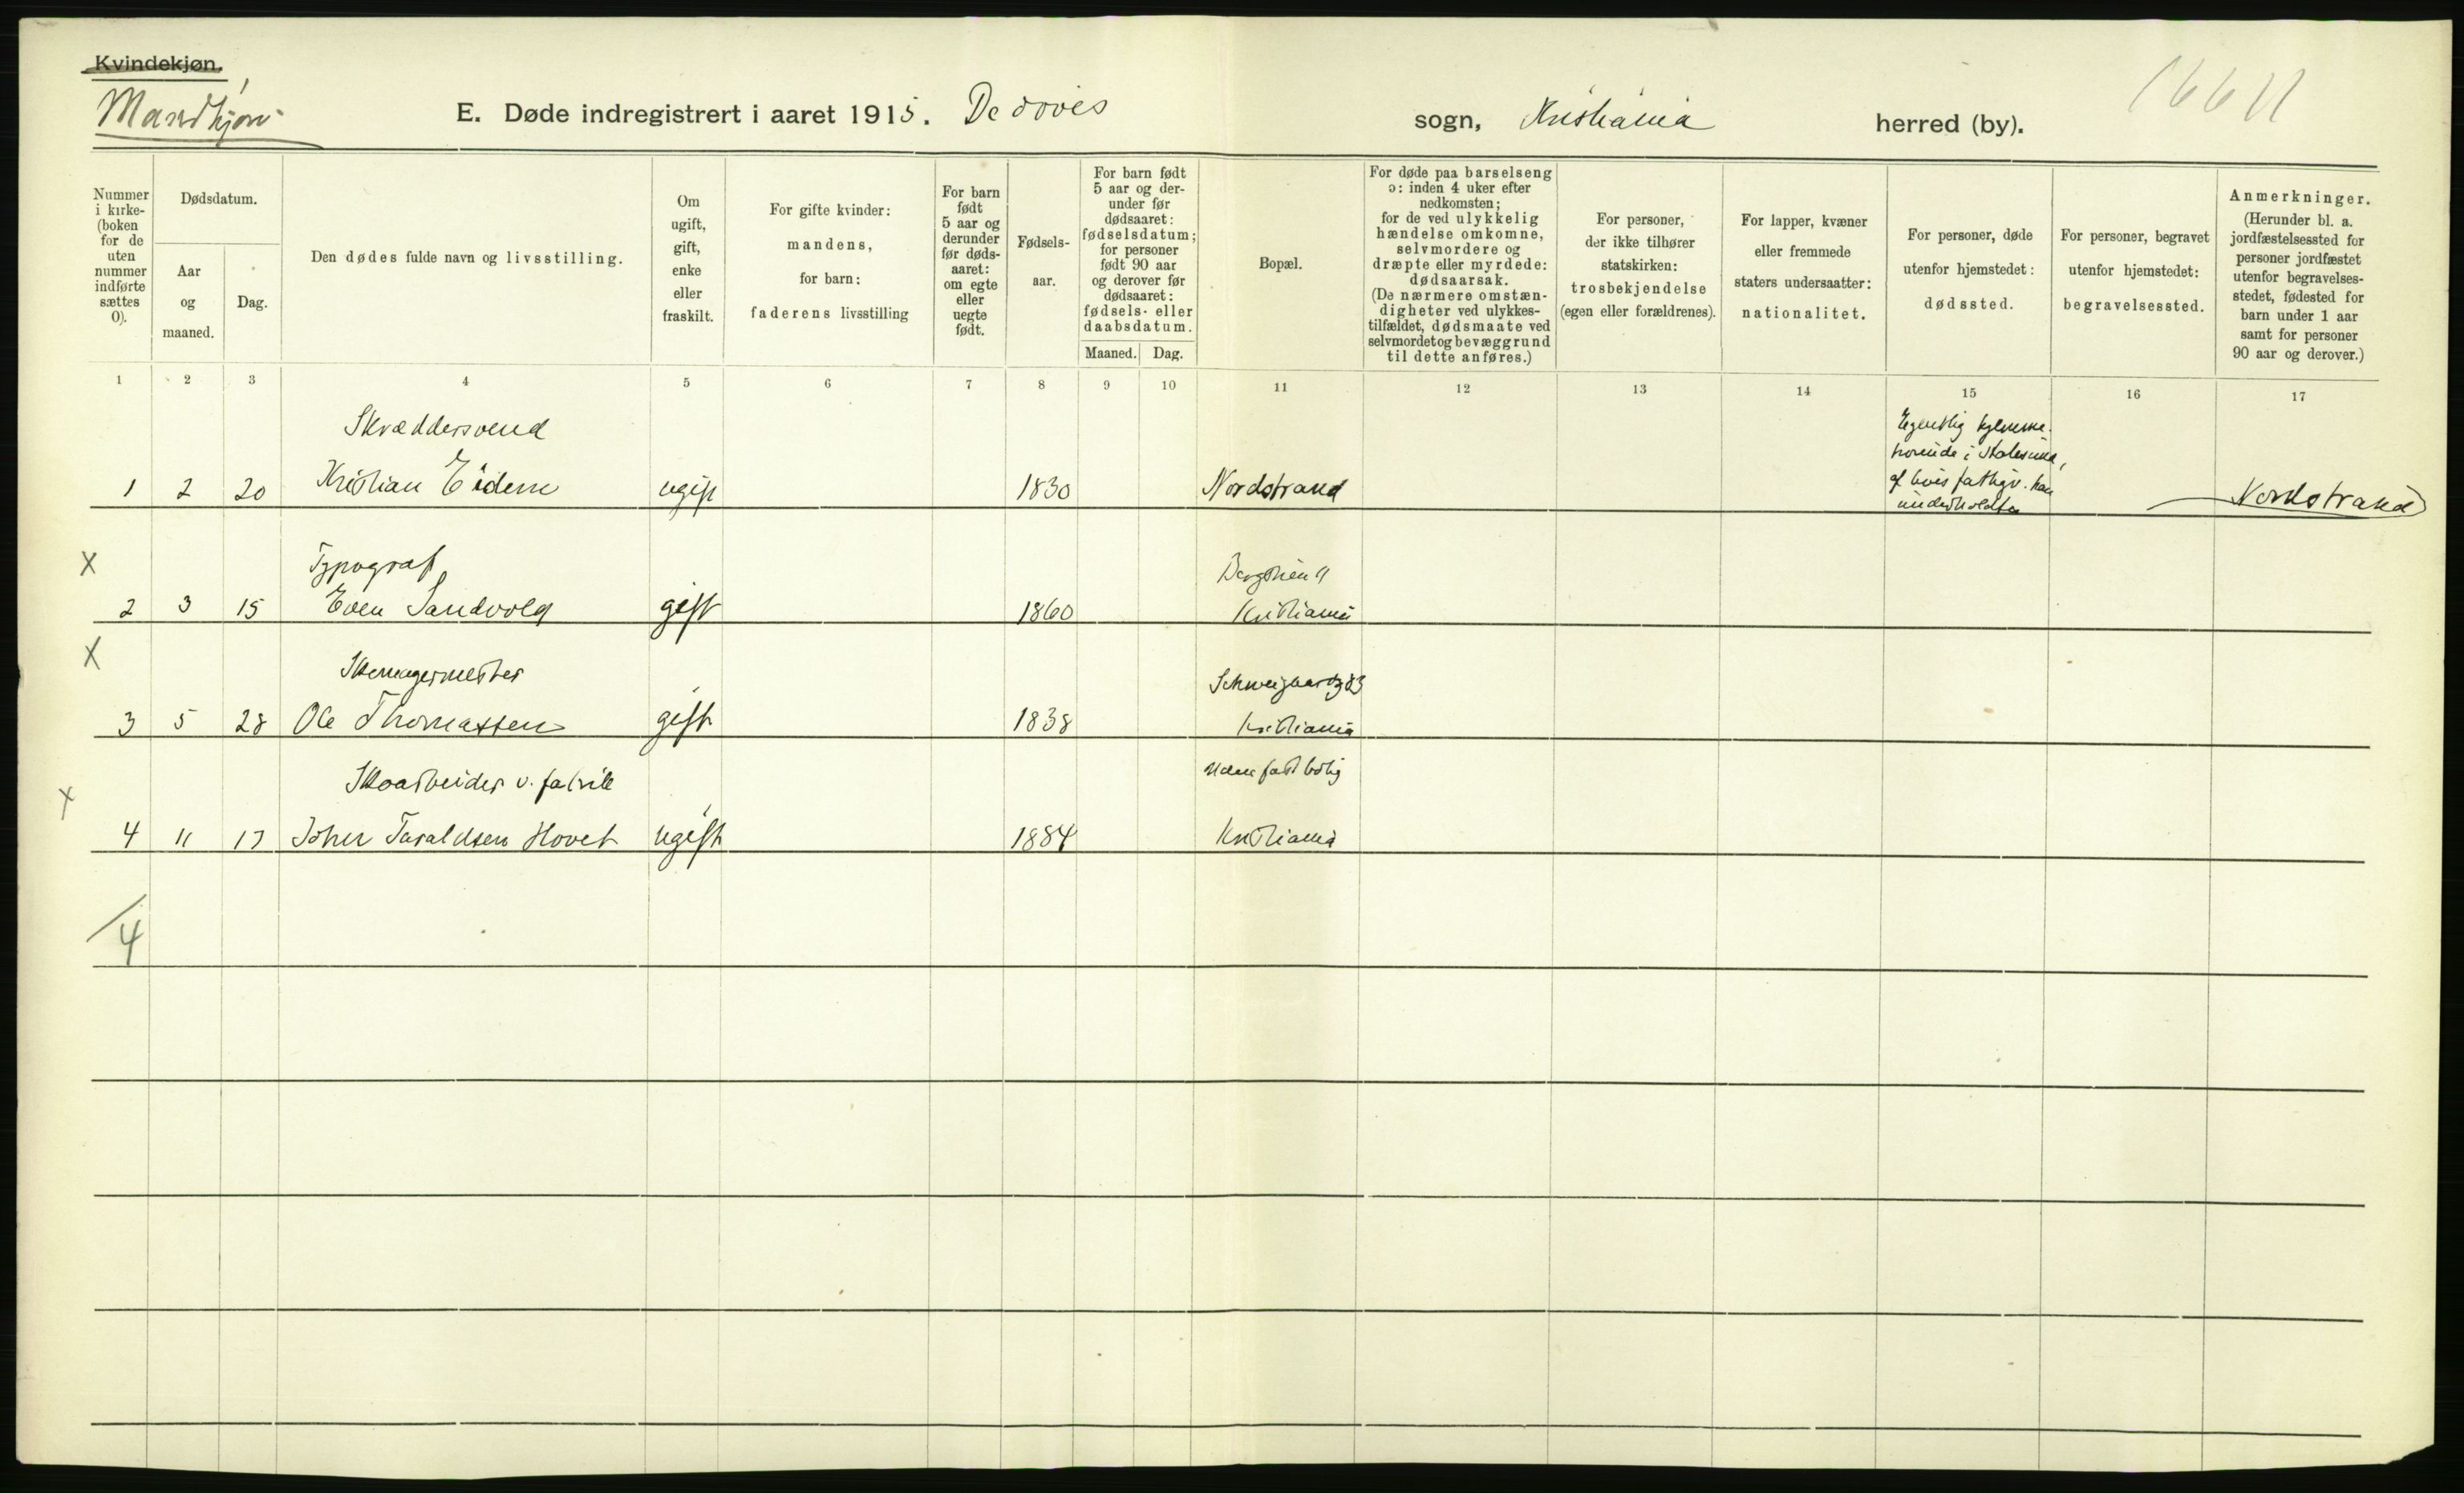 Kvindekjøn.
Mandkjøn
E. Døde indregistrert i aaret 1915. De døves sogn, Kristiania herred (by).
Nummer i kirke- (boken for de uten nummer indførte sættes 0).
Dødsdatum.
Aar og maaned.
Dag.
Den dødes fulde navn og livsstilling.
Om ugift, gift, enke eller fraskilt.
For gifte kvinder: mandens, for barn: faderens livsstilling
For barn født 5 aar og derunder før døds- aaret: om egte eller uegte født.
Fødsels- aar.
For barn født 5 aar og der- under før dødsaaret: fødselsdatum; for personer født 90 aar og derover før dødsaaret: fødsels- eller daabsdatum.
Maaned. Dag.
Bopæl.
For døde paa barselseng ɔ: inden 4 uker efter nedkomsten; for de ved ulykkelig hændelse omkomne, selvmordere og dræpte eller myrdede: dødsaarsak. (De nærmere omstæn- digheter ved ulykkes- tilfældet, dødsmaate ved selvmordet og bevæggrund til dette anføres.)
For personer, der ikke tilhører statskirken: trosbekjendelse (egen eller forældrenes).
For lapper, kvæner eller fremmede staters undersaatter: nationalitet.
For personer, døde utenfor hjemstedet: dødssted.
For personer, begravet utenfor hjemstedet: begravelsessted.
Anmerkninger. (Herunder bl. a. jordfæstelsessted for personer jordfæstet utenfor begravelses- stedet, fødested for barn under 1 aar samt for personer 90 aar og derover.)
1 2 3 4 5 6 7 8 9 10 11 12 13 14 15 16 17
Skræddersvend
Egentlig hjemme-
hørende i
af hvis fattigv. han
1 2 20 Kristian Eidem ugift 1830 Nordstrand Nordstrand
underholdtes
X Typograf
2 3 15 Even Sandvold gift 1860 Kristiania
X Skomagermester Schweigaardsg 83
3 5 28 Ole Thomassen gift 1838 Kristiania
X Skoarbeider v. fabrik Uden fast bolig
4 11 17 Joher Taraldsen Hovet ugift 1884 Kristiania
4